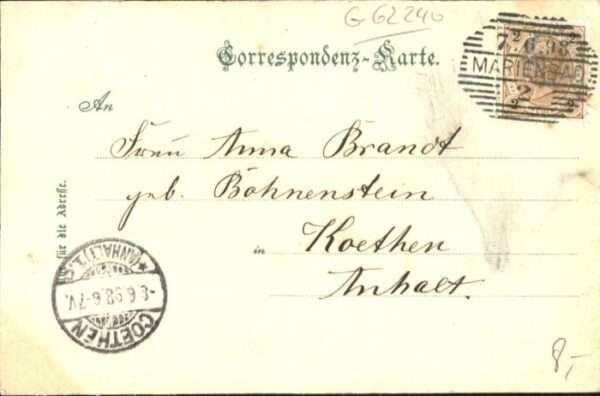 G 62240
7.6.98
MARIENBAD
2
Correspondenz-Karte.
An
Frau Anna Brandt
geb. Bohnenstein
in Koethen
Anhalt.
Für die Adresse.
COETHEN
(ANHALT)
8.6.98.6-7V.
8,-